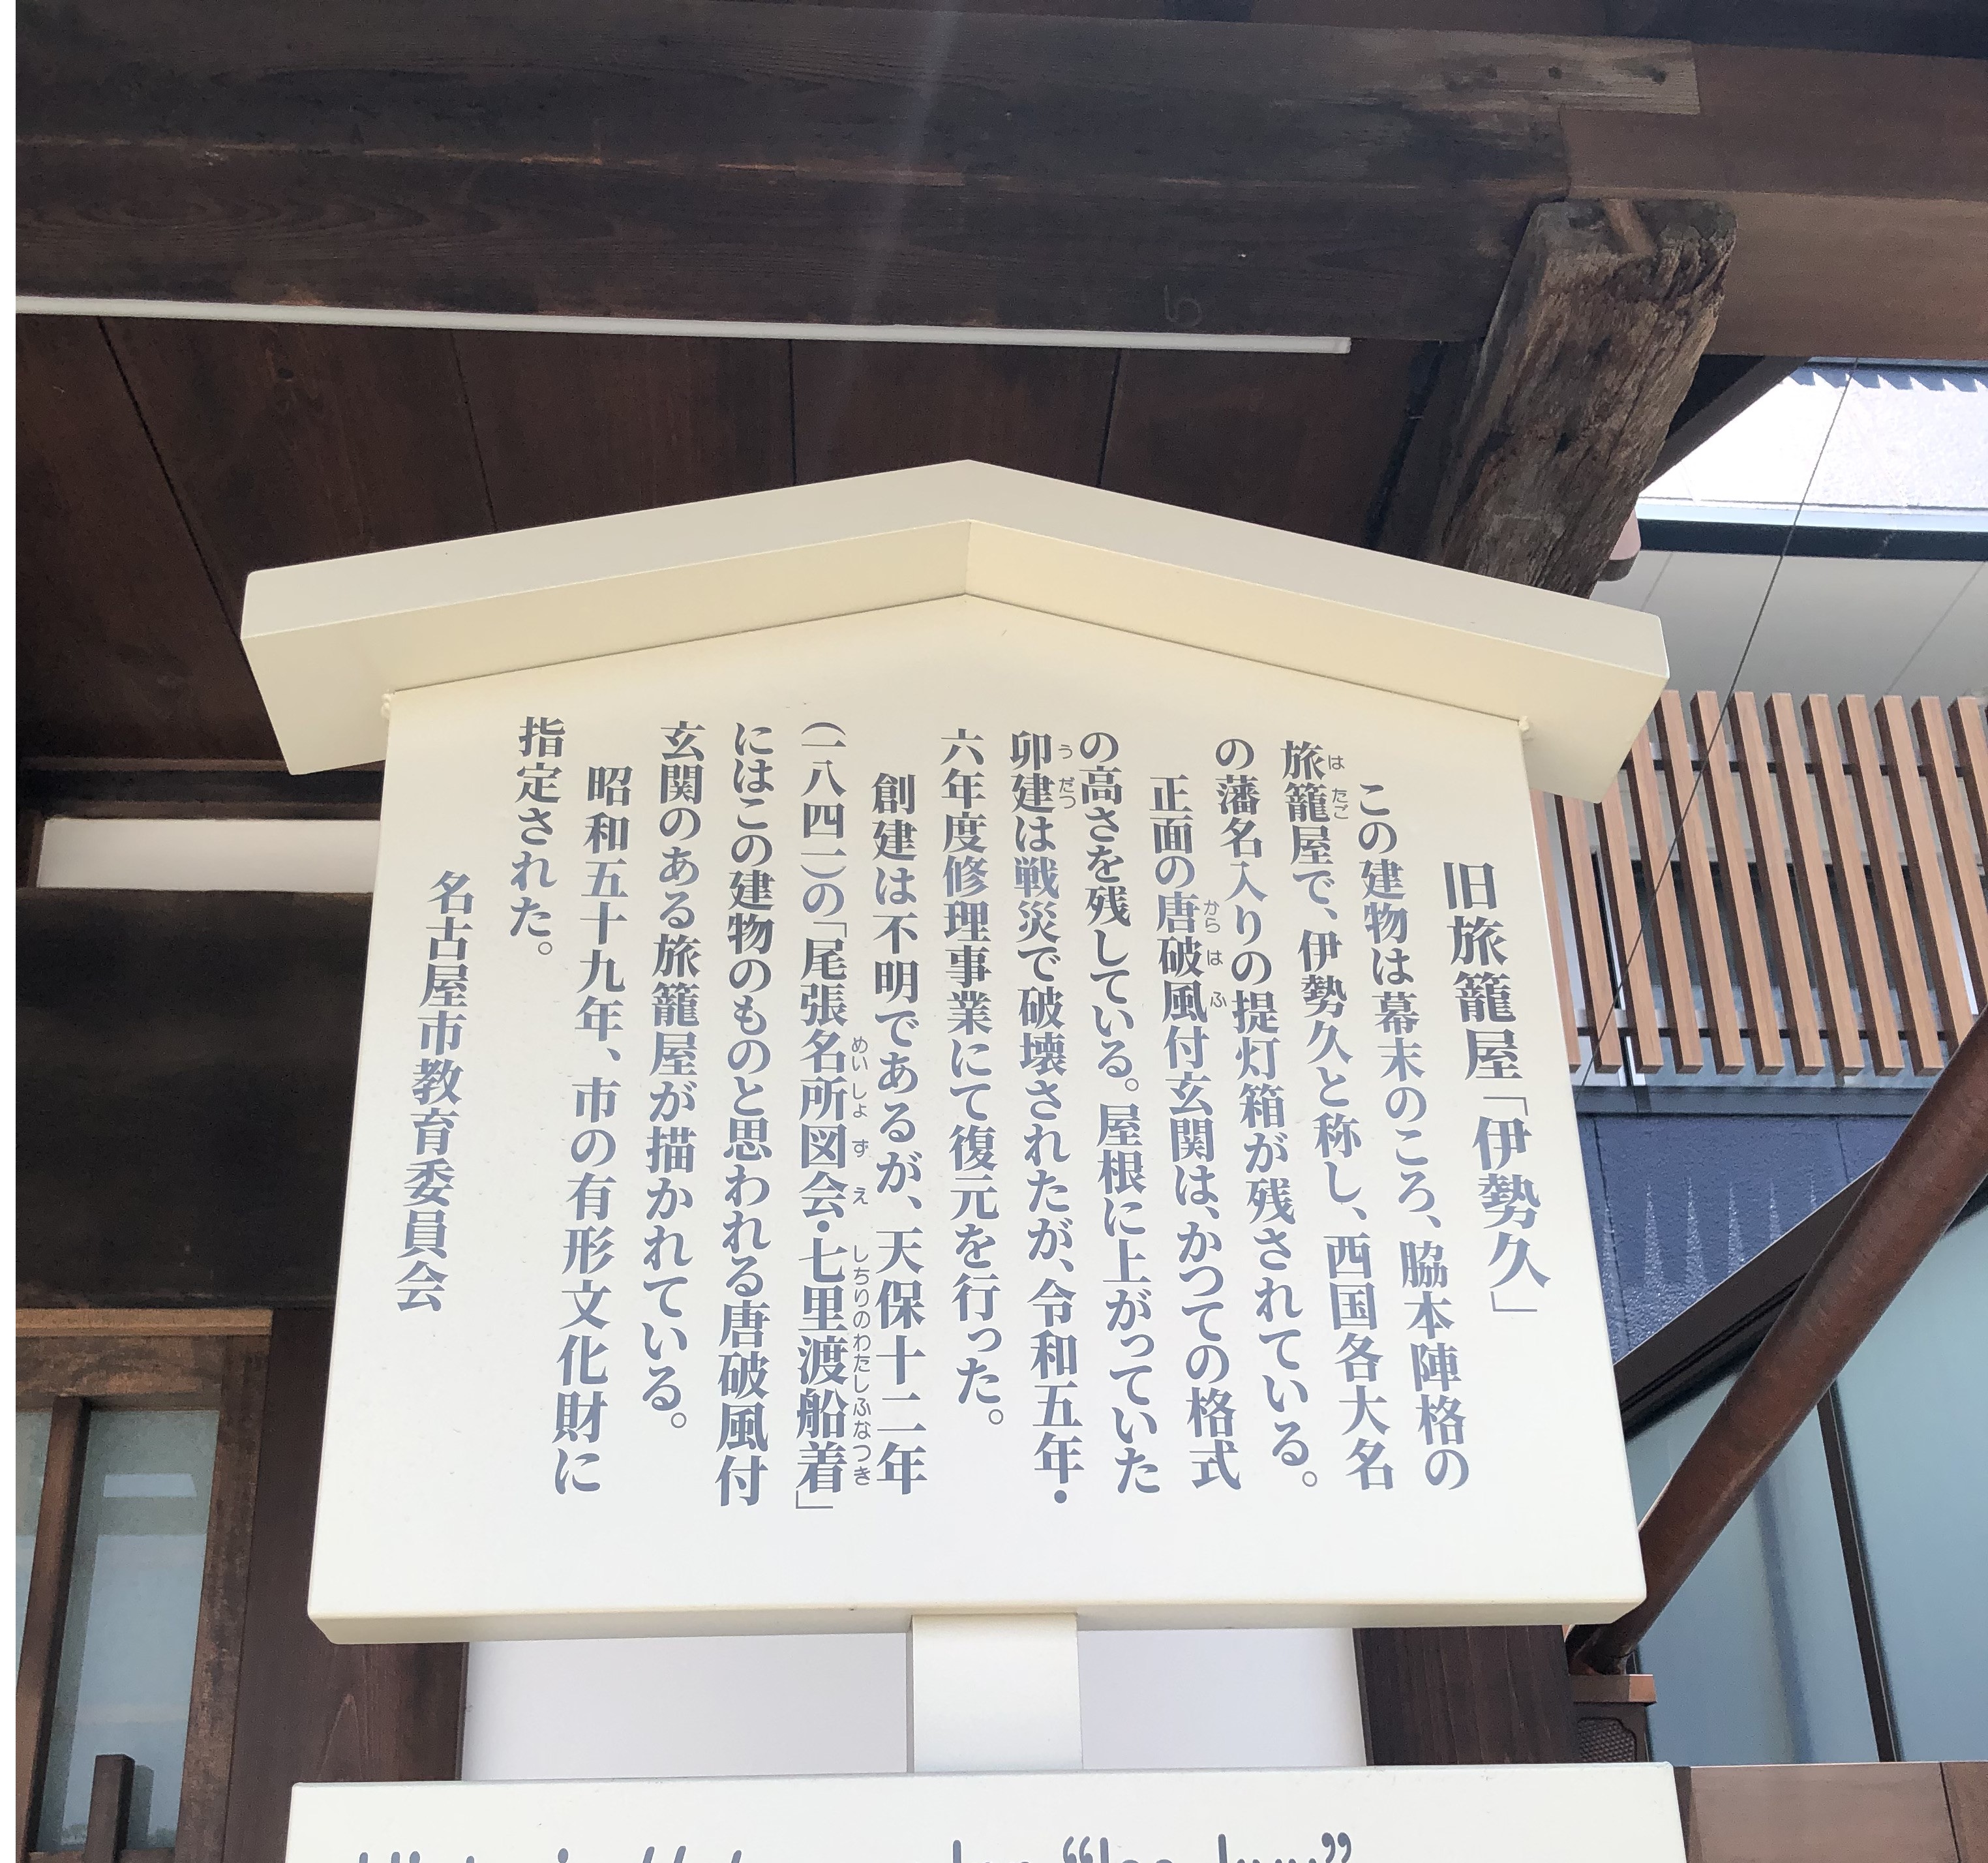 旧旅籠屋「伊勢久」
この建物は幕末のころ、脇本陣格の
旅籠屋で、伊勢久と称し、西国各大名
はたご
の藩名入りの提灯箱が残されている。
正面の唐破風付玄関は、かつての格式
からはふ
の高さを残している。屋根に上がっていた
卯建は戦災で破壊されたが、令和五年・
うだつ
六年度修理事業にて復元を行った。
創建は不明であるが、天保十二年
(一八四一)の「尾張名所図会・七里渡船着」
めいしよずえ しちりのわたしふなつき
にはこの建物のものと思われる唐破風付
玄関のある旅籠屋が描かれている。
昭和五十九年、市の有形文化財に
指定された。
名古屋市教育委員会